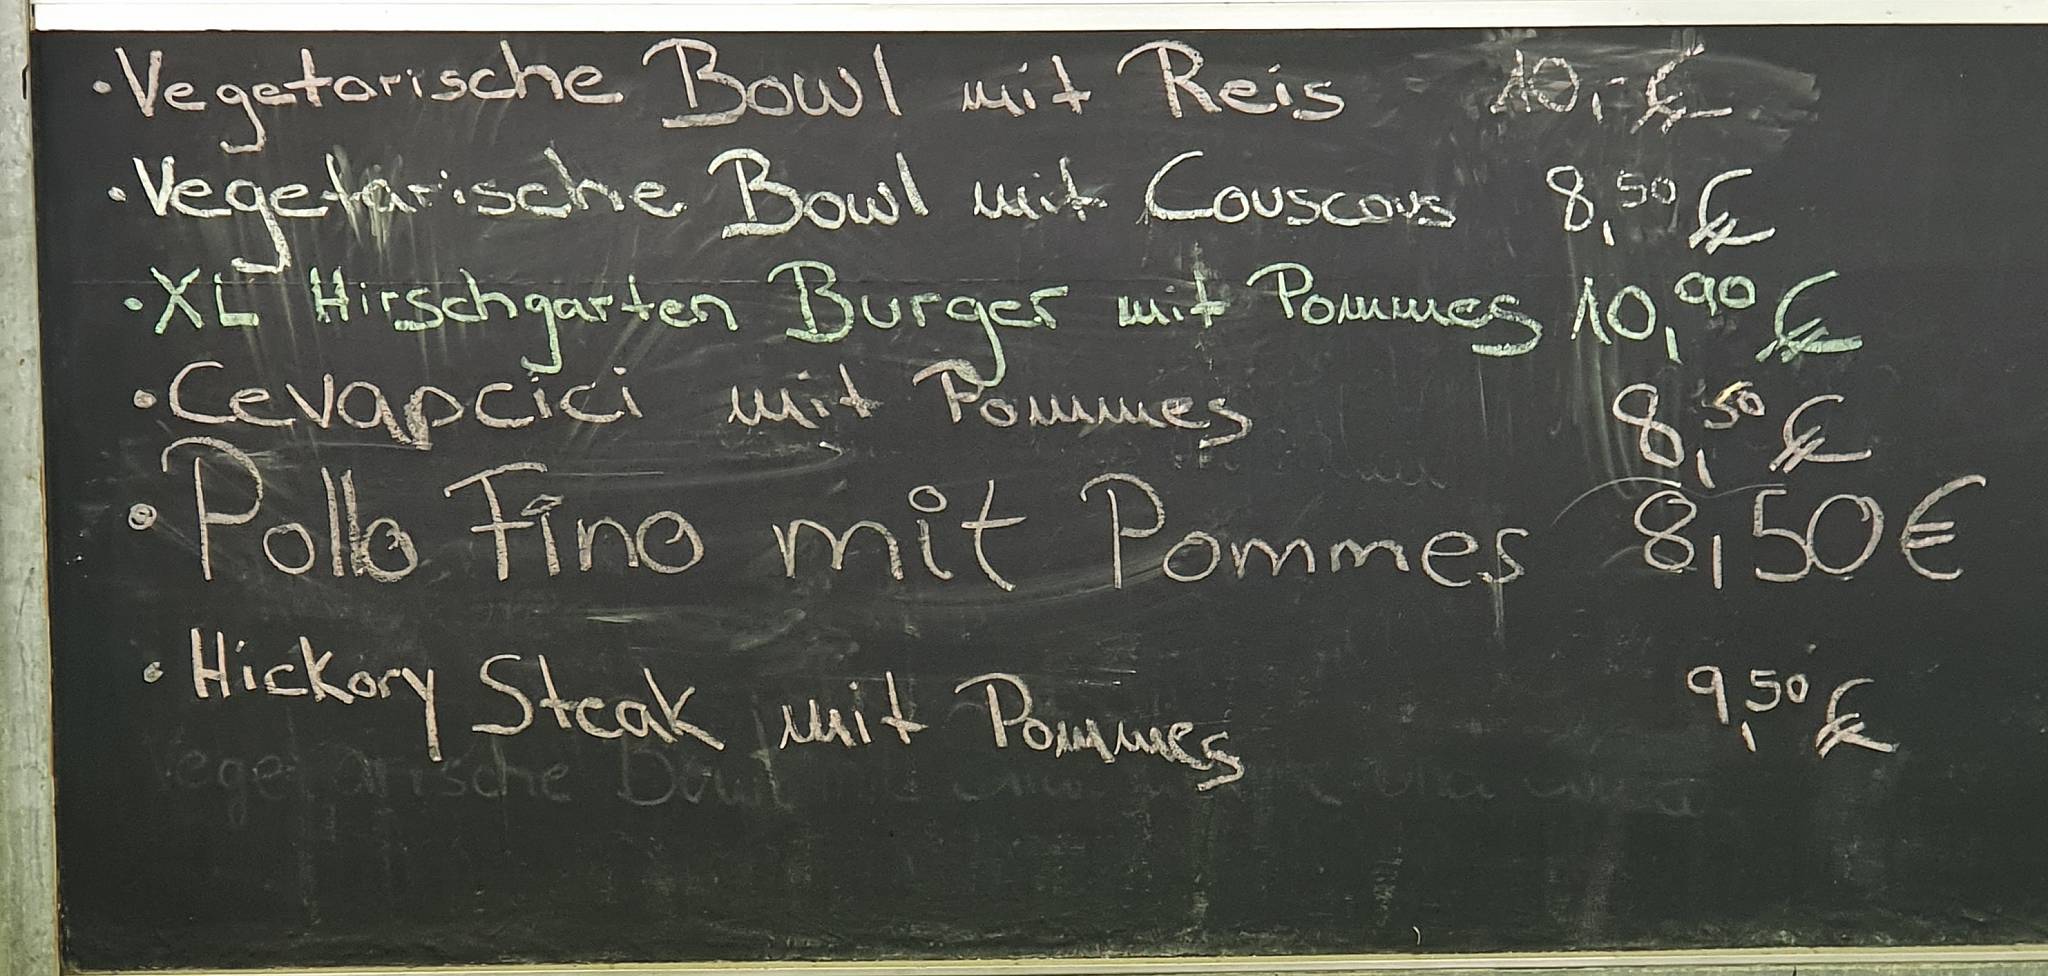 · Vegetarische Bowl mit Reis 10,- €
· Vegetarische Bowl mit Couscous 8,50 €
· XL Hirschgarten Burger mit Pommes 10,90 €
· Cevapcici mit Pommes 8,50 €
· Pollo Fino mit Pommes 8,50 €
· Hickory Steak mit Pommes 9,50 €
Vegetarische Bowl